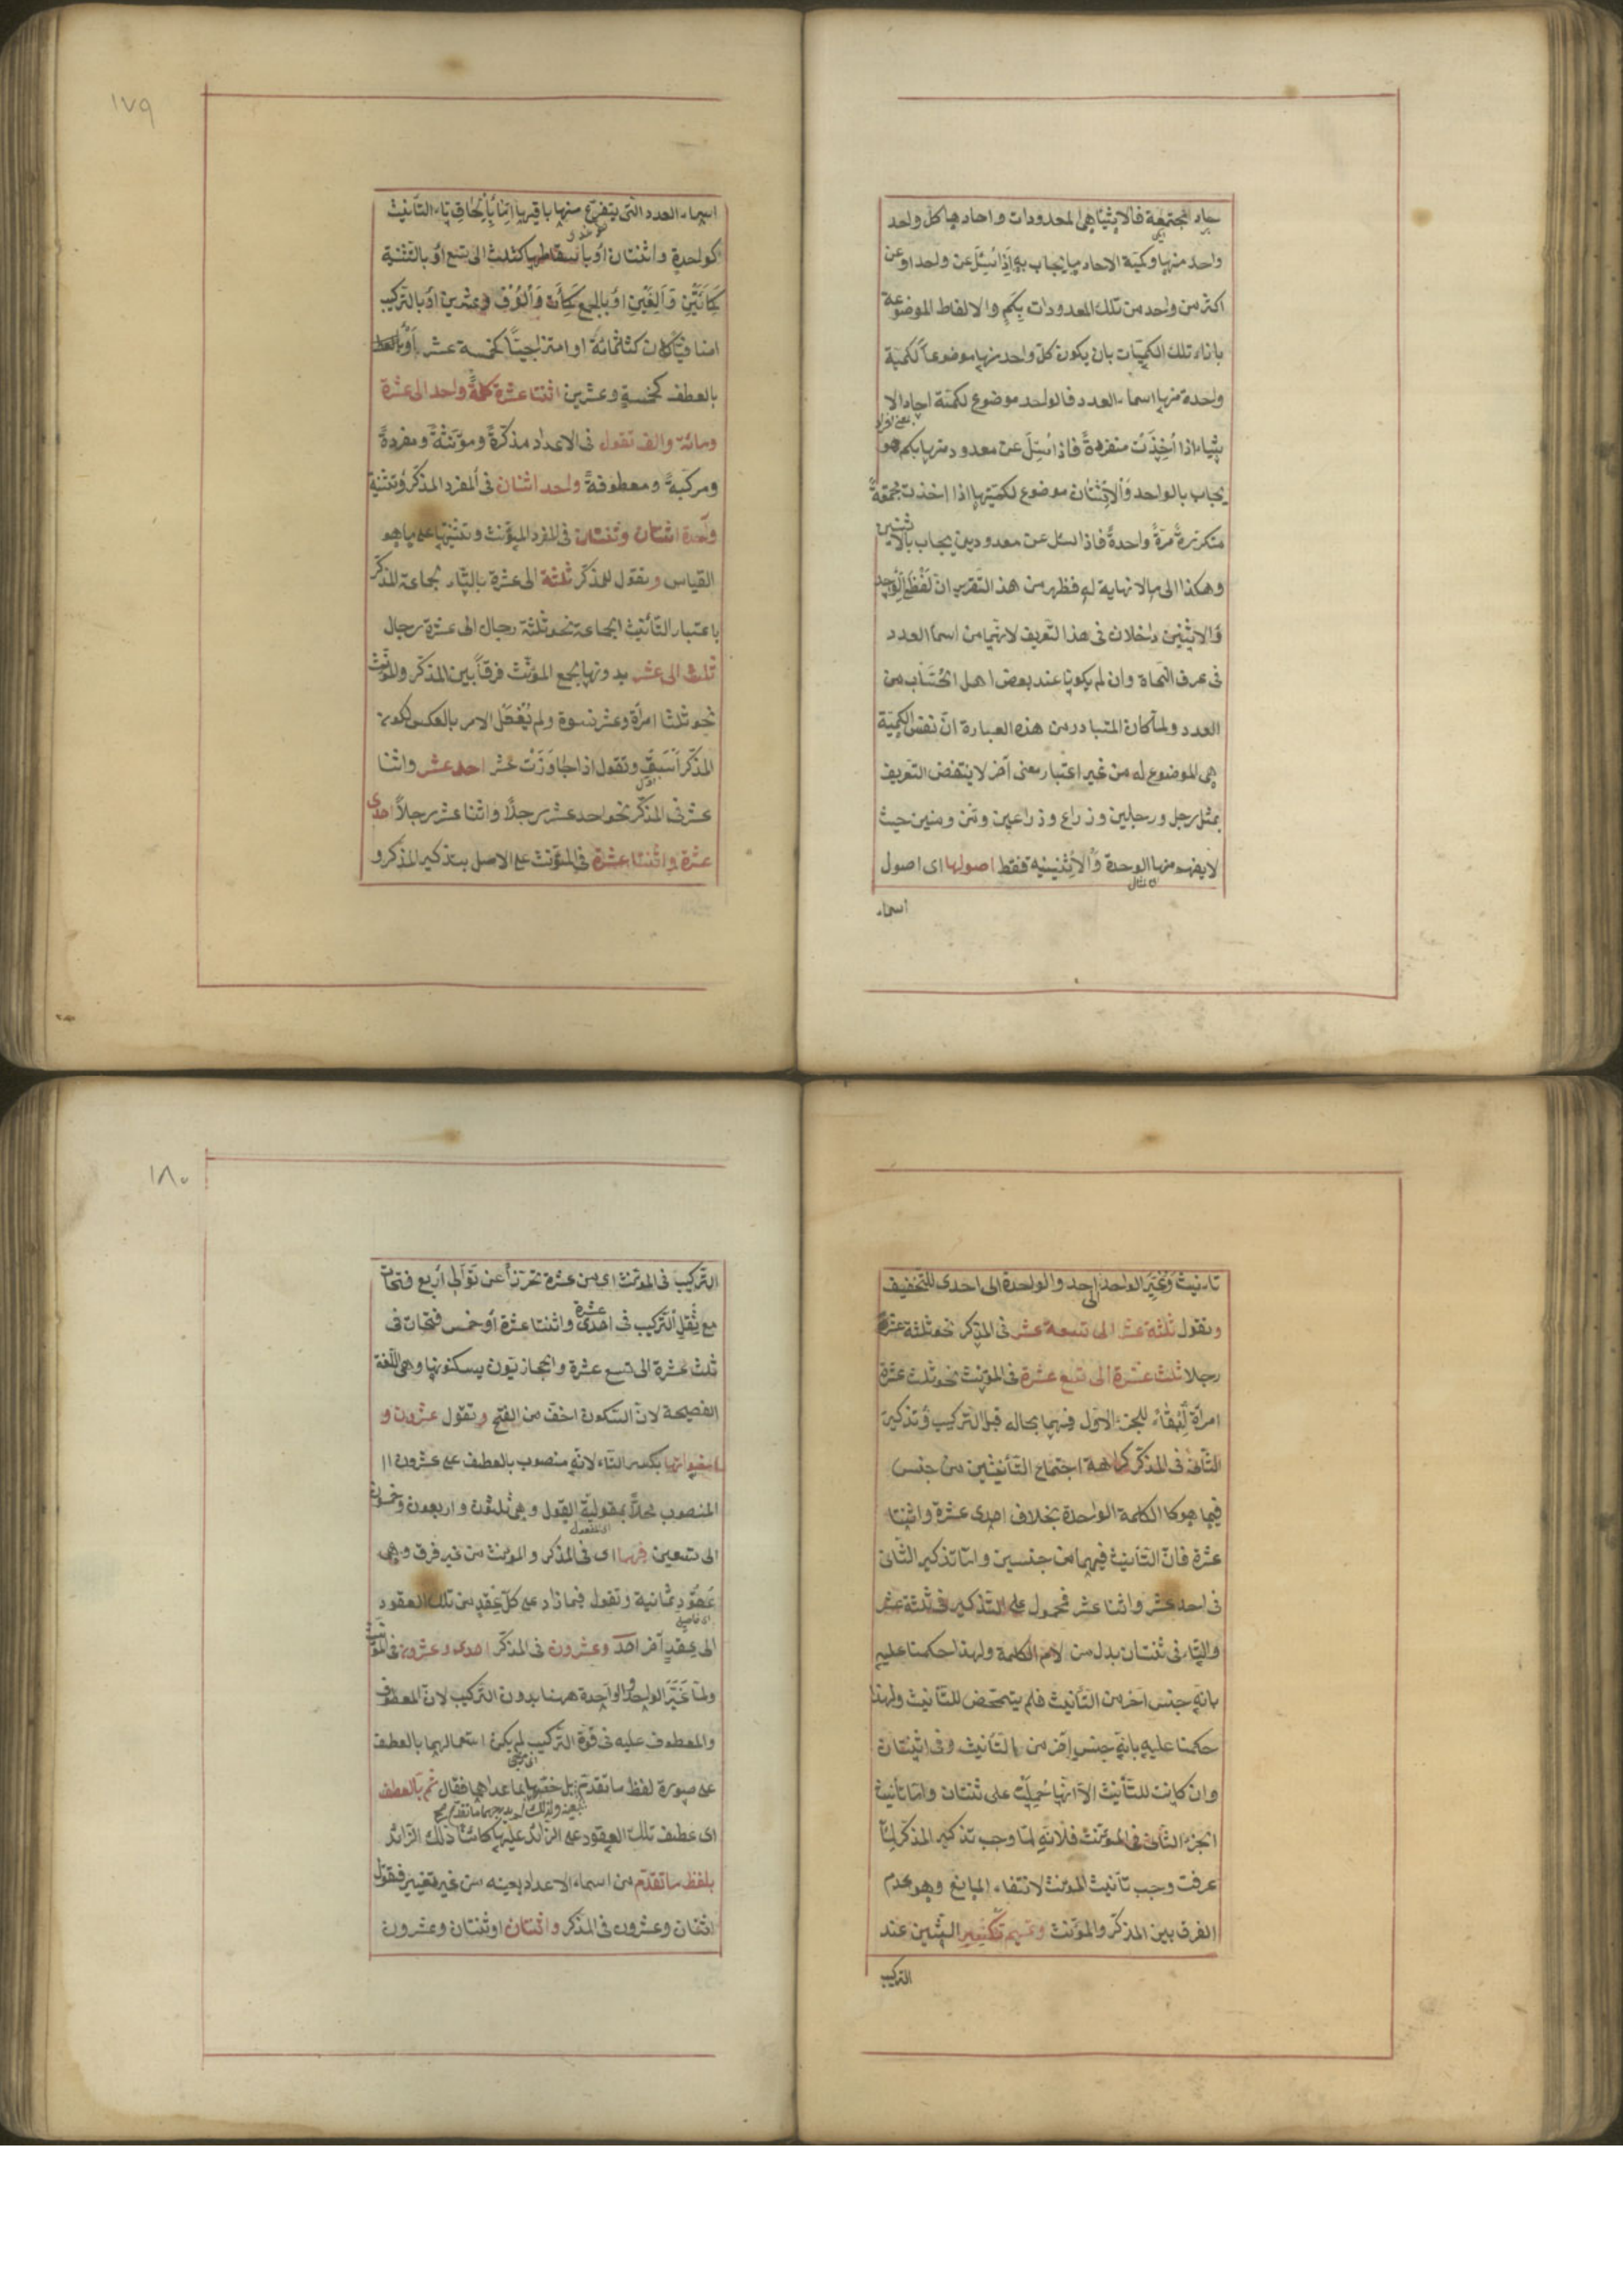 حاد مجتمعة فالاشياء هي المعدودات واحادها كل واحد
واحد منها وكمية الاحاد ما يجاب به اذا سئل عن واحد او عن
اكثر من واحد من تلك المعدودات بكم والالفاظ الموضوعة
بازاء تلك الكميات بان يكون كل واحد منها موضوعا لكمية
واحدة منها اسماء العدد فالواحد موضوع لكمية احاد الا
شياء اذا اخذت منفردة فاذا سئل عن معدود منها بكم هو
يجاب بالواحد والاثنان موضوع لكميتها اذا اخذت مجتمعة
متكررة مرة واحدة فاذا سئل عن معدودين يجاب بالاثنين
وهكذا الى ما لا نهاية له فظهر من هذا التقرير ان لفظ الواحد
والاثنين داخلان فى هذا التعريف لانهما من اسماء العدد
فى عرف النحاة وان لم يكونا عند بعض اهل الحساب من
العدد ولما كان المتبادر من هذه العبارة ان نفس الكمية
هى الموضوع له من غير اعتبار معنى آخر لا ينتقض التعريف
بمثل رجل ورجلين وذراع وذراعين ومن ومنين حيث
لا يفهم منها الوحدة والاثنينية فقط اصولها اى اصول
اسماء
١٧٩
اسماء العدد التى يتفرع منها باقيها اما بالحاق تاء التأنيث
كواحدة واثنتان او باسقاطها كثلث الى تسع او بالتثنية
كمائتين والفين او بالجمع كمآت والوف وعشرين او بالتركيب
اضافيا كان كثلثمائة او امتزاجيا كخمسة عشر او بالعطف
بالعطف كخمسة وعشرين اثنتا عشرة كلمة واحد الى عشرة
ومائة والف تقول فى الاعداد مذكرة ومؤنثة ومفردة
ومركبة ومعطوفة واحد اثنان فى المفرد المذكر وتثنية
واحدة اثنتان وثنتان فى المفرد المؤنث وتثنيتها على ما هو
القياس وتقول للمذكر ثلثة الى عشرة بالتاء لجماعة المذكر
باعتبار التأنيث الجماعة نحو ثلثة رجال الى عشرة رجال
ثلث الى عشر بدونها لجمع المؤنث فرقا بين المذكر والمؤنث
نحو ثلث امرأة وعشر نسوة ولم يفعل الامر بالعكس لكون
المذكر اسبق وتقول اذا جاوزت عشر احد عشر واثنا
عشر فى المذكر نحو احد عشر رجلا واثنا عشر رجلا احدى
عشرة واثنتا عشرة فى المؤنث على الاصل بتذكير المذكر و
تأنيث وتغير الواحد الى احد والواحدة الى احدى للتخفيف
وتقول ثلثة عشر الى تسعة عشر فى المذكر نحو ثلثة عشر
رجلا ثلث عشرة الى تسع عشرة فى المؤنث نحو ثلث عشرة
امرأة لبقاء للجزء الاول فيهما بحاله قبل التركيب وتذكير
الثانى فى المذكر كراهة اجتماع التأنيثين من جنس
فيما هو كالكلمة الواحدة بخلاف احدى عشرة واثنتا
عشرة فان التأنيث فيهما من جنسين واما تذكير الثانى
فى احد عشر واثنا عشر فمحمول على التذكير فى ثلثة عشر
والتاء فى ثنتان بدل من لام الكلمة ولهذا حكمنا عليه
بانه جنس آخر من التأنيث فلم يتمحض للتأنيث ولهذا
حكمنا عليه بانه جنس آخر من التأنيث وفى اثنتان
وان كانت للتأنيث الا انها حملت على ثنتان واما تأنيث
الجزء الثانى فى المؤنث فلانه لما وجب تذكير المذكر لما
عرفت وجب تأنيث المؤنث لانتفاء المانع وهو عدم
الفرق بين المذكر والمؤنث وتميم تكسير الشين عند
التركيب
١٨٠
التركيب فى المؤنث اى من عشرة تحرزا عن توالى اربع فتحات
مع ثقل التركيب فى احدى عشرة واثنتا عشرة او خمس فتحات فى
ثلث عشرة الى تسع عشرة والحجازيون يسكنونها وهى اللغة
الفصيحة لان السكون اخف من الفتح وتقول عشرون و
اخواتها بكسر التاء لانه منصوب بالعطف على عشرون اا
المنصوب محلا بمقولية القول وهى ثلثون واربعون وخمسون
الى تسعين فيهما اى فى المذكر والمؤنث من غير فرق وهى
عقود ثمانية وتقول فيما زاد على كل عقد من تلك العقود
الى عقد آخر احد وعشرون فى المذكر احدى وعشرون فى المؤنث
ولما غير الواحد والواحدة ههنا بدون التركيب لان المعطوف
والمعطوف عليه فى قوة التركيب لم يكن استعمالهما بالعطف
على صورة لفظ ما تقدم بل خصها بما عداهما فقال ثم بالعطف
اى عطف تلك العقود على الزائد عليها كائنا ذلك الزائد
بلفظ ما تقدم من اسماء الاعداد بعينه من غير تغيير فتقول
اثنان وعشرون فى المذكر واثنتان او ثنتان وعشرون